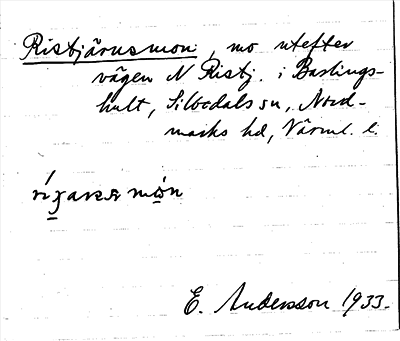 Ristjärnsmon, mo utefter
vägen N Ristj. i Bastings-
hult, Silbodals sn, Nord-
marks hd, Värml. l.
E. Andersson 1933.